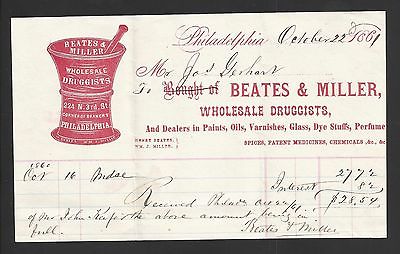 BEATES &
MILLER
WHOLESALE
DRUGGISTS
224 N. 3rd. St.
CORNER of BRANCH St
PHILADELPHIA
Philadelphia October 22d 1861
Mr Jos Gerhart
To Bought of BEATES & MILLER,
WHOLESALE DRUGGISTS,
And Dealers in Paints, Oils, Varnishes, Glass, Dye Stuffs, Perfume
HENRY BEATES,
WM. J. MILLER.
SPICES, PATENT MEDICINES, CHEMICALS &c., &c
1860
Oct 16 Mdse 27 72
Interest 82
$28.54
Received Philada Oct 22/61
of Mr John the above amount being in
full.
Beates & Miller